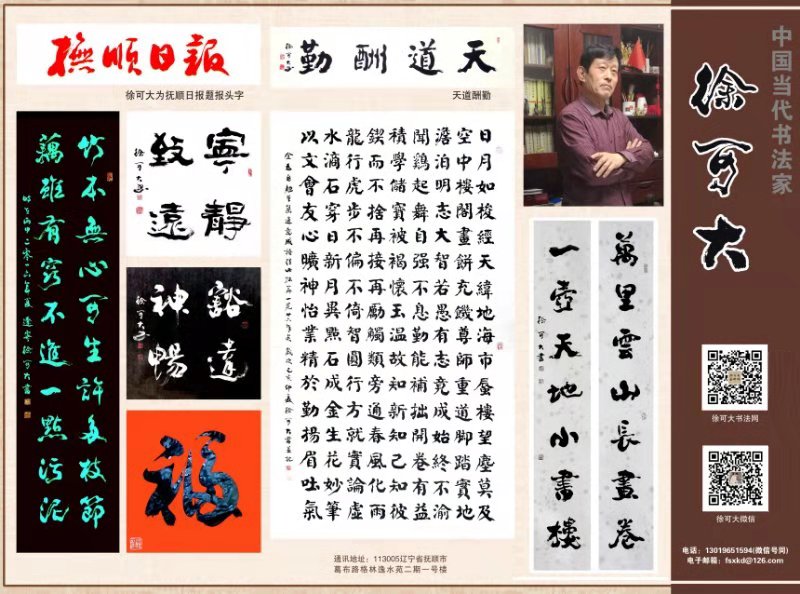 撫順日報
徐可大为抚顺日报题报头字
天道酬勤
徐可大
天道酬勤
竹本無心可生許多枝節
藕雖有竅不進一點污泥
寧靜
致遠
徐可大
豁達
神暢
徐可大
福
日月如梭經天緯地海市蜃樓望塵莫及
空中樓閣畫餅充饑尊師重道脚踏實地
澹泊明志大智若愚有志竟成始終不渝
聞鷄起舞自强不息勤能補拙開卷有益
積學儲寶被褐懷玉温故知新知己知彼
鍥而不捨再接再勵觸類旁通春風化雨
龍行虎步不偏不倚智圓行方就實論虛
水滴石穿日新月異點石成金生花妙筆
以文會友心曠神怡業精於勤揚眉吐氣
萬里雲山長畫卷
一壺天地小書樓
徐可大書
通讯地址：113005辽宁省抚顺市
葛布路格林逸水苑二期一号楼
中国当代书法家
徐可大
徐可大书法网
徐可大微信
电话：13019651594(微信号同)
电子邮箱：fsxkd@126.com